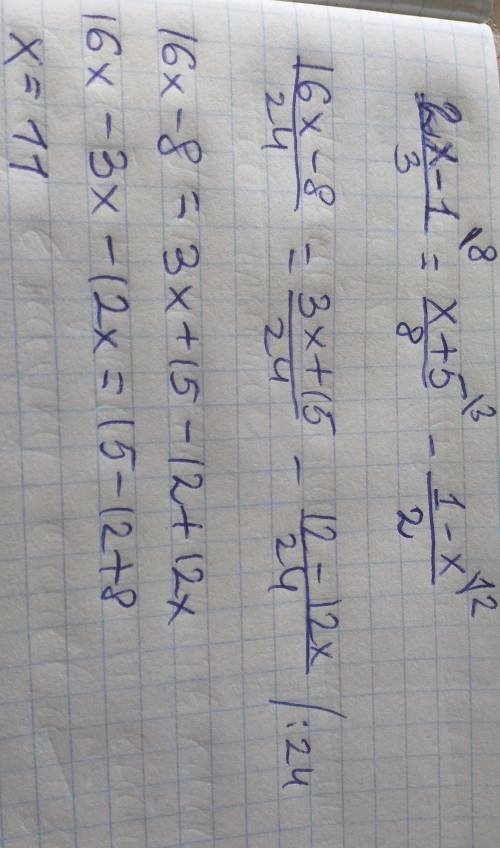 (2x-1)/3 \8 = (x+5)/8 \3 - (1-x)/2 \12
(16x-8)/24 = (3x+15)/24 - (12-12x)/24 / :24
16x-8 = 3x+15-12+12x
16x-3x-12x = 15-12+8
x = 11